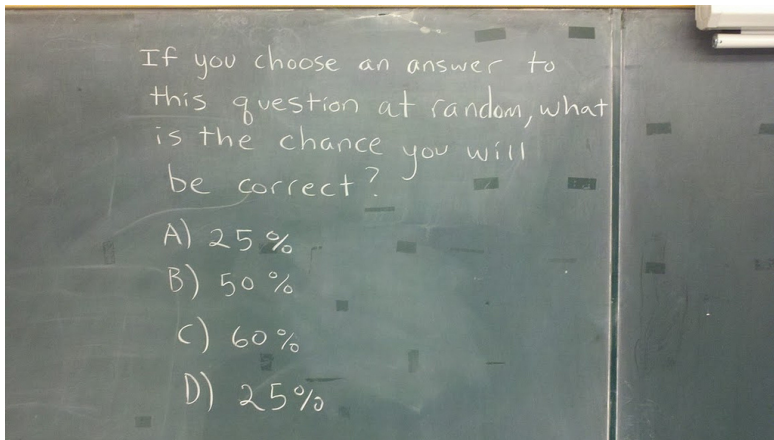 If you choose an answer to
this question at random, what
is the chance you will
be correct?
A) 25%
B) 50%
C) 60%
D) 25%